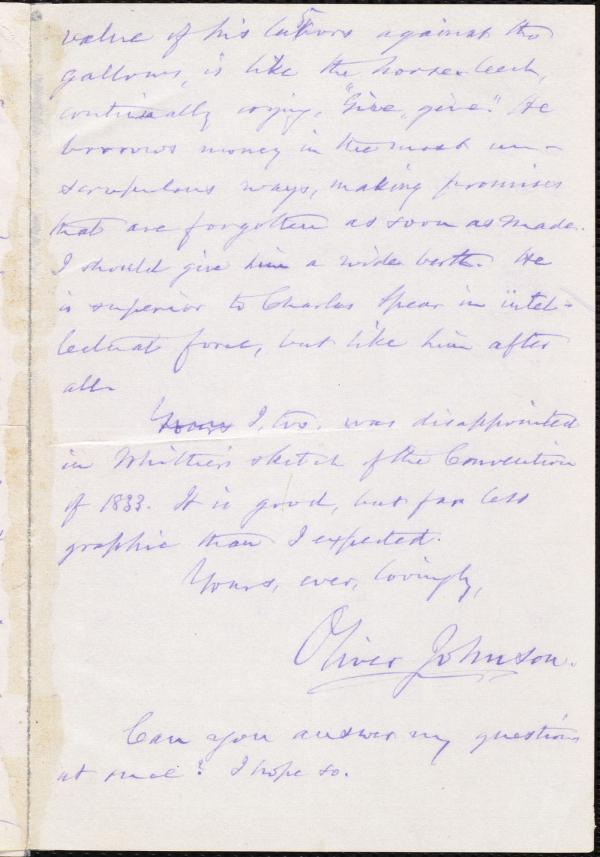 value of his labors against the
gallows, is like the horse-leech,
continually crying, "Give, give." He
borrows money in the most un-
scrupulous ways, making promises
that are forgotten as soon as made.
I should give him a wide berth. He
is superior to Charles Spear in intel-
lectual force, but like him after
all.
Yours I, too, was disappointed
in Whittier's sketch of the Convention
of 1833. It is good, but far less
graphic than I expected.
Yours, ever, lovingly,
Oliver Johnson.
Can you answer my questions
at once? I hope so.